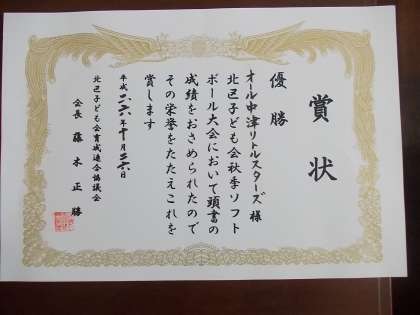 賞状
優勝
オール中津リトルスターズ 様
北区子ども会秋季ソフト
ボール大会において頭書の
成績をおさめられたので
その栄誉をたたえこれを
賞します
平成二六年十月二六日
北区子ども会育成連合協議会
会長 藤本正勝